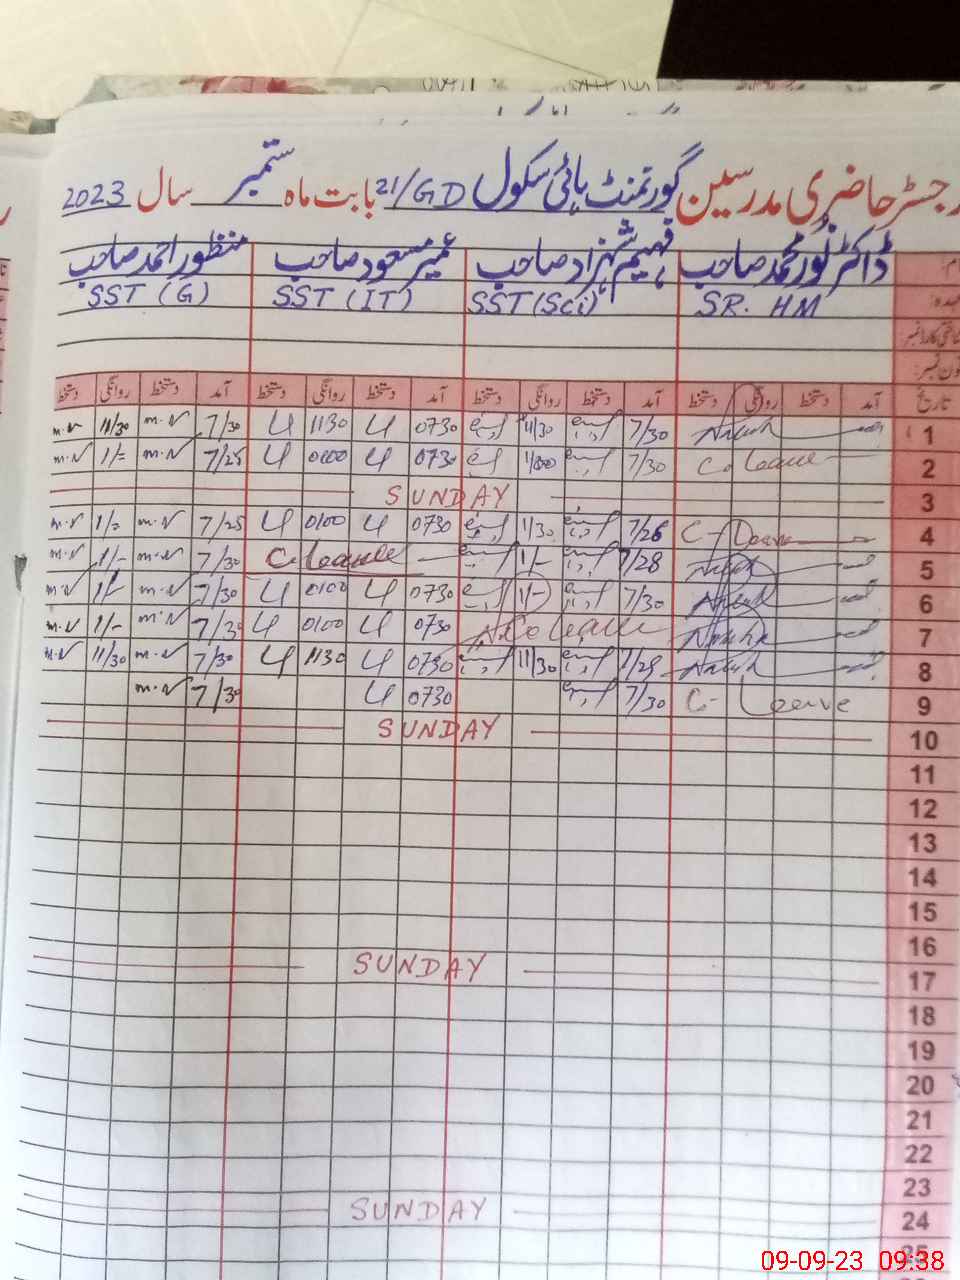 رجسٹر حاضری مدرسین گورنمنٹ ہائی سکول 21/GD بابت ماہ ستمبر سال 2023
ڈاکٹر نور محمد صاحب فہیم شہزاد صاحب عمیر مسعود صاحب منظور احمد صاحب
SR. HM SST (Sci) SST (IT) SST (G)
تاریخ آمد دستخط روانگی دستخط آمد دستخط روانگی دستخط آمد دستخط روانگی دستخط آمد دستخط روانگی دستخط
1 7/30 11/30 0730 1130 7/30 m.N 11/30 m.N
2 C. Leave 7/30 1/00 0730 0100 7/25 m.N 1/- m.N
3 SUNDAY
4 C- Leave 7/26 1/30 0730 0100 7/25 m.N 1/- m.N
5 7/28 1/- C. Leave 7/30 m.N 1/- m.N
6 7/30 1/- 0730 0100 7/30 m.N 1/- m.N
7 Leave 0730 0100 7/30 m.N 1/- m.N
8 7/29 11/30 0730 1130 7/30 m.N 11/30 m.N
9 C- Leave 7/30 0730 7/30 m.N
10 SUNDAY
11
12
13
14
15
16
17 SUNDAY
18
19
20
21
22
23
24 SUNDAY
25
09-09-23 09:38